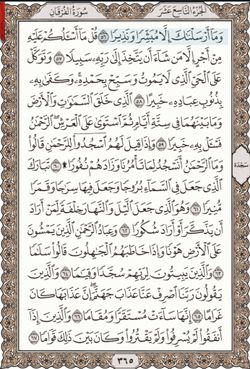 الجزء التاسع عشر
سورة الفرقان
وَمَآ أَرْسَلْنَٰكَ إِلَّا مُبَشِّرًا وَنَذِيرًا ٥٦ قُلْ مَآ أَسْـَٔلُكُمْ عَلَيْهِ
مِنْ أَجْرٍ إِلَّا مَن شَآءَ أَن يَتَّخِذَ إِلَىٰ رَبِّهِۦ سَبِيلًا ٥٧ وَتَوَكَّلْ
عَلَى ٱلْحَىِّ ٱلَّذِى لَا يَمُوتُ وَسَبِّحْ بِحَمْدِهِۦ وَكَفَىٰ بِهِۦ
بِذُنُوبِ عِبَادِهِۦ خَبِيرًا ٥٨ ٱلَّذِى خَلَقَ ٱلسَّمَٰوَٰتِ وَٱلْأَرْضَ
وَمَا بَيْنَهُمَا فِى سِتَّةِ أَيَّامٍ ثُمَّ ٱسْتَوَىٰ عَلَى ٱلْعَرْشِ ٱلرَّحْمَٰنُ
فَسْـَٔلْ بِهِۦ خَبِيرًا ٥٩ وَإِذَا قِيلَ لَهُمُ ٱسْجُدُوا۟ لِلرَّحْمَٰنِ قَالُوا۟
وَمَا ٱلرَّحْمَٰنُ أَنَسْجُدُ لِمَا تَأْمُرُنَا وَزَادَهُمْ نُفُورًا ۩ ٦٠ تَبَارَكَ
سَجْدَة
ٱلَّذِى جَعَلَ فِى ٱلسَّمَآءِ بُرُوجًا وَجَعَلَ فِيهَا سِرَٰجًا وَقَمَرًا
مُّنِيرًا ٦١ وَهُوَ ٱلَّذِى جَعَلَ ٱلَّيْلَ وَٱلنَّهَارَ خِلْفَةً لِّمَنْ أَرَادَ
أَن يَذَّكَّرَ أَوْ أَرَادَ شُكُورًا ٦٢ وَعِبَادُ ٱلرَّحْمَٰنِ ٱلَّذِينَ يَمْشُونَ
عَلَى ٱلْأَرْضِ هَوْنًا وَإِذَا خَاطَبَهُمُ ٱلْجَٰهِلُونَ قَالُوا۟ سَلَٰمًا
٦٣ وَٱلَّذِينَ يَبِيتُونَ لِرَبِّهِمْ سُجَّدًا وَقِيَٰمًا ٦٤ وَٱلَّذِينَ
يَقُولُونَ رَبَّنَا ٱصْرِفْ عَنَّا عَذَابَ جَهَنَّمَ إِنَّ عَذَابَهَا كَانَ
غَرَامًا ٦٥ إِنَّهَا سَآءَتْ مُسْتَقَرًّا وَمُقَامًا ٦٦ وَٱلَّذِينَ إِذَآ
أَنفَقُوا۟ لَمْ يُسْرِفُوا۟ وَلَمْ يَقْتُرُوا۟ وَكَانَ بَيْنَ ذَٰلِكَ قَوَامًا ٦٧
٣٦٥